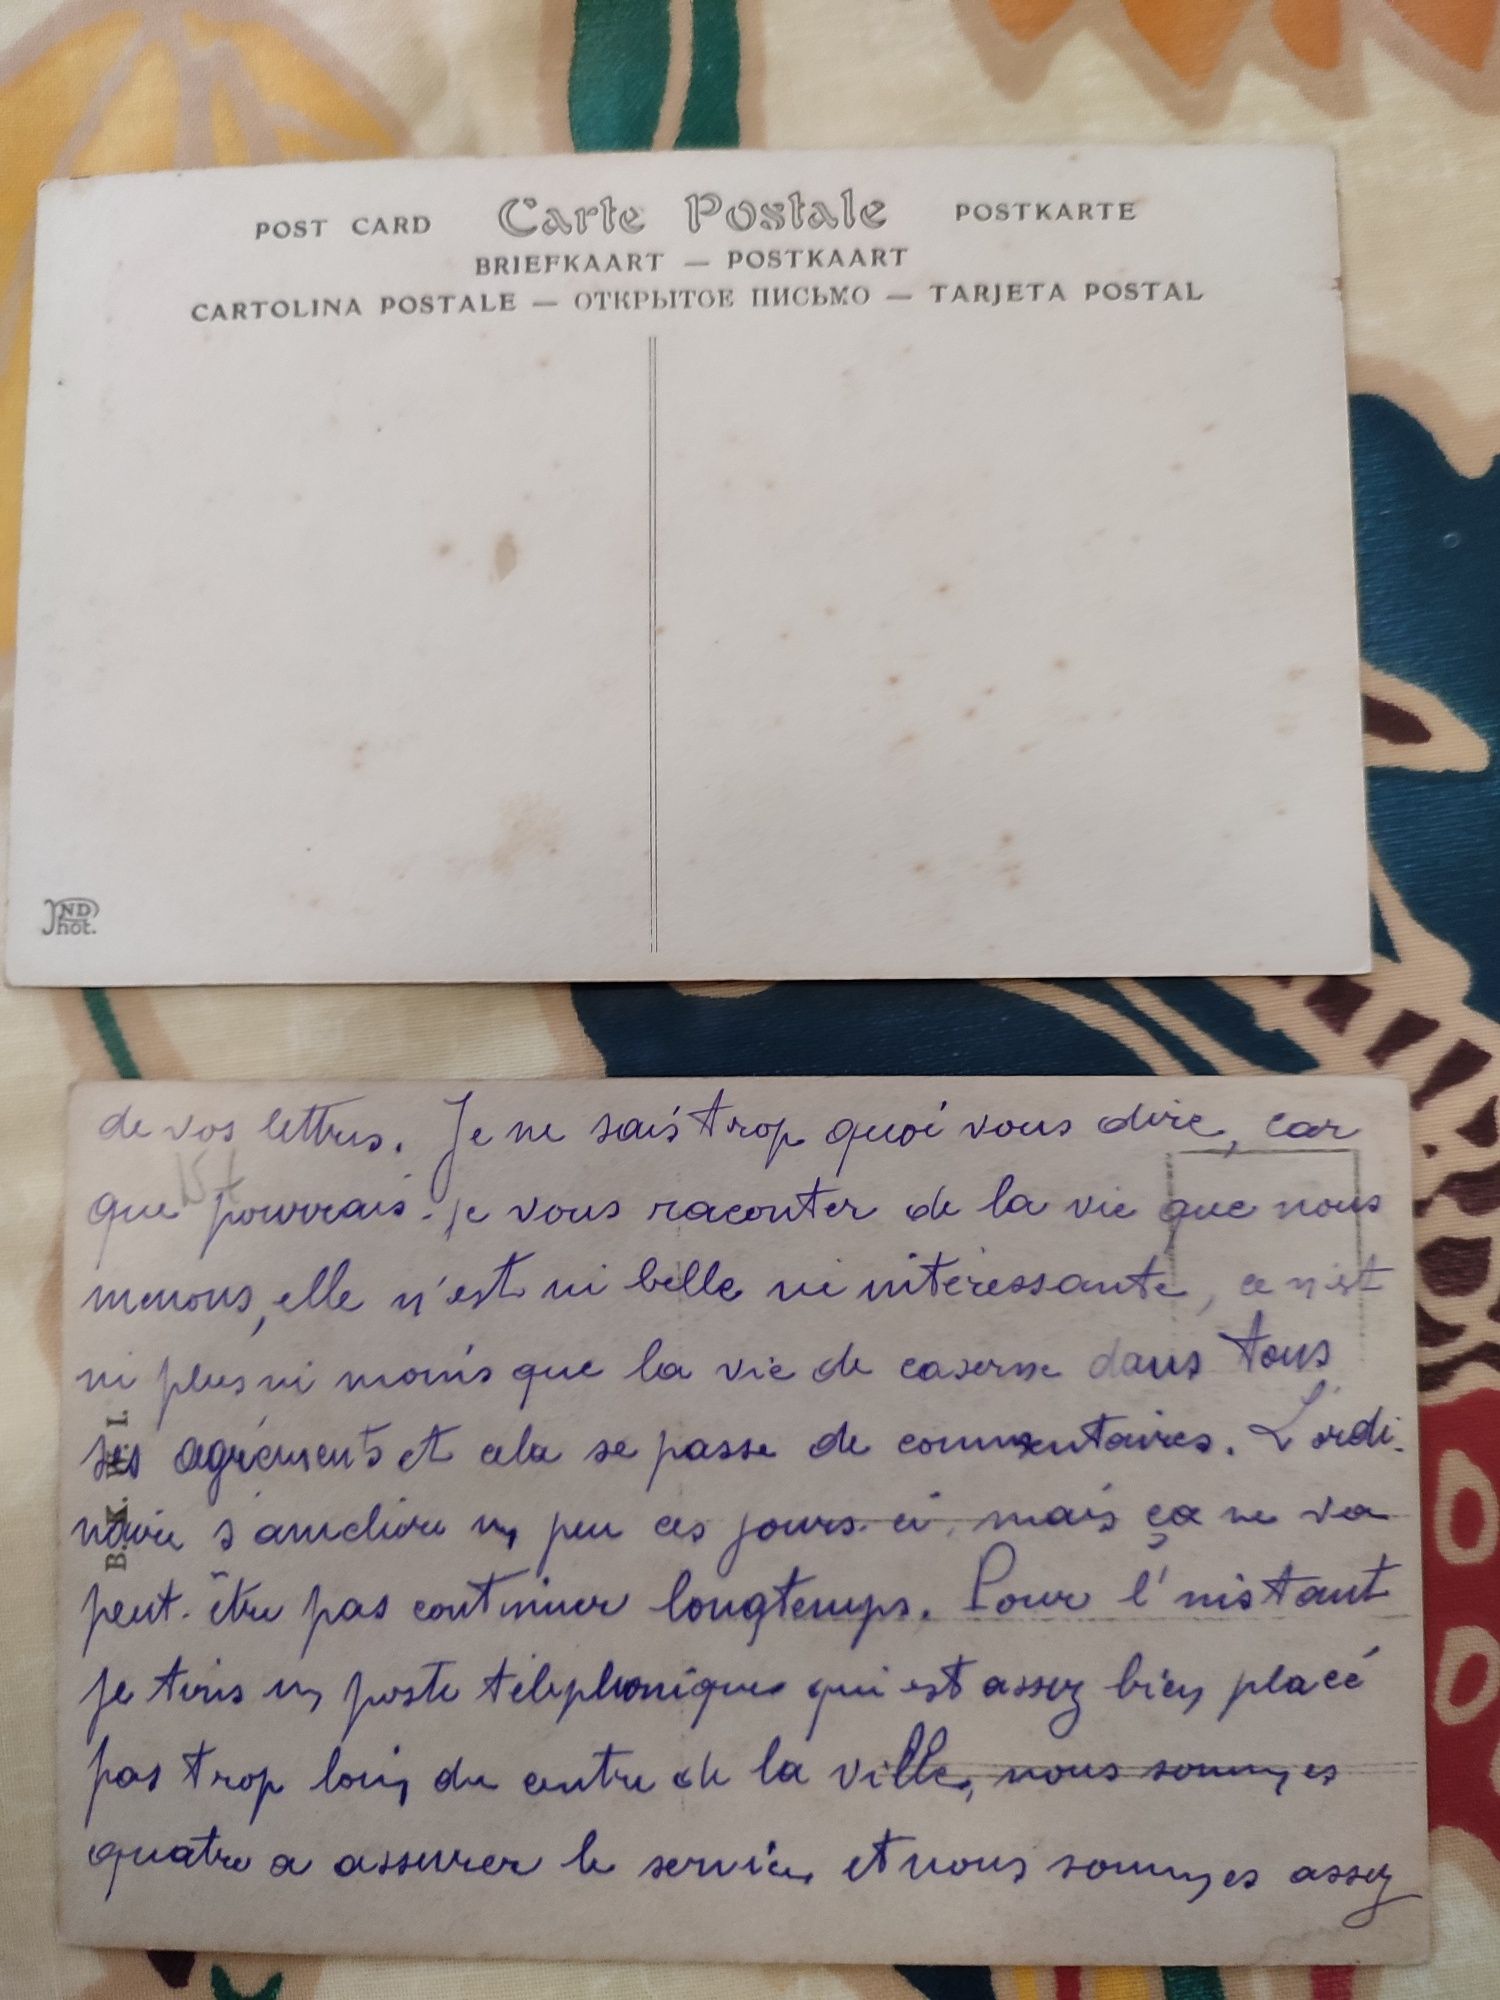 POST CARD Carte Postale POSTKARTE
BRIEFKAART — POSTKAART
CARTOLINA POSTALE — ОТКРЫТОЕ ПИСЬМО — TARJETA POSTAL
ND
Phot.
de vos lettres. Je ne sais trop quoi vous dire, car
que pourrais-je vous raconter de la vie que nous
menons, elle n'est ni belle ni intéressante, ce n'est
ni plus ni moins que la vie de caserne dans tous
ses agréments et cela se passe de commentaires. L'ordi-
naire s'améliore un peu ces jours-ci, mais ça ne va
peut-être pas continuer longtemps. Pour l'instant
je tiens un poste téléphonique qui est assez bien placé
pas trop loin du centre de la ville, nous sommes
quatre a assurer le service et nous sommes assez